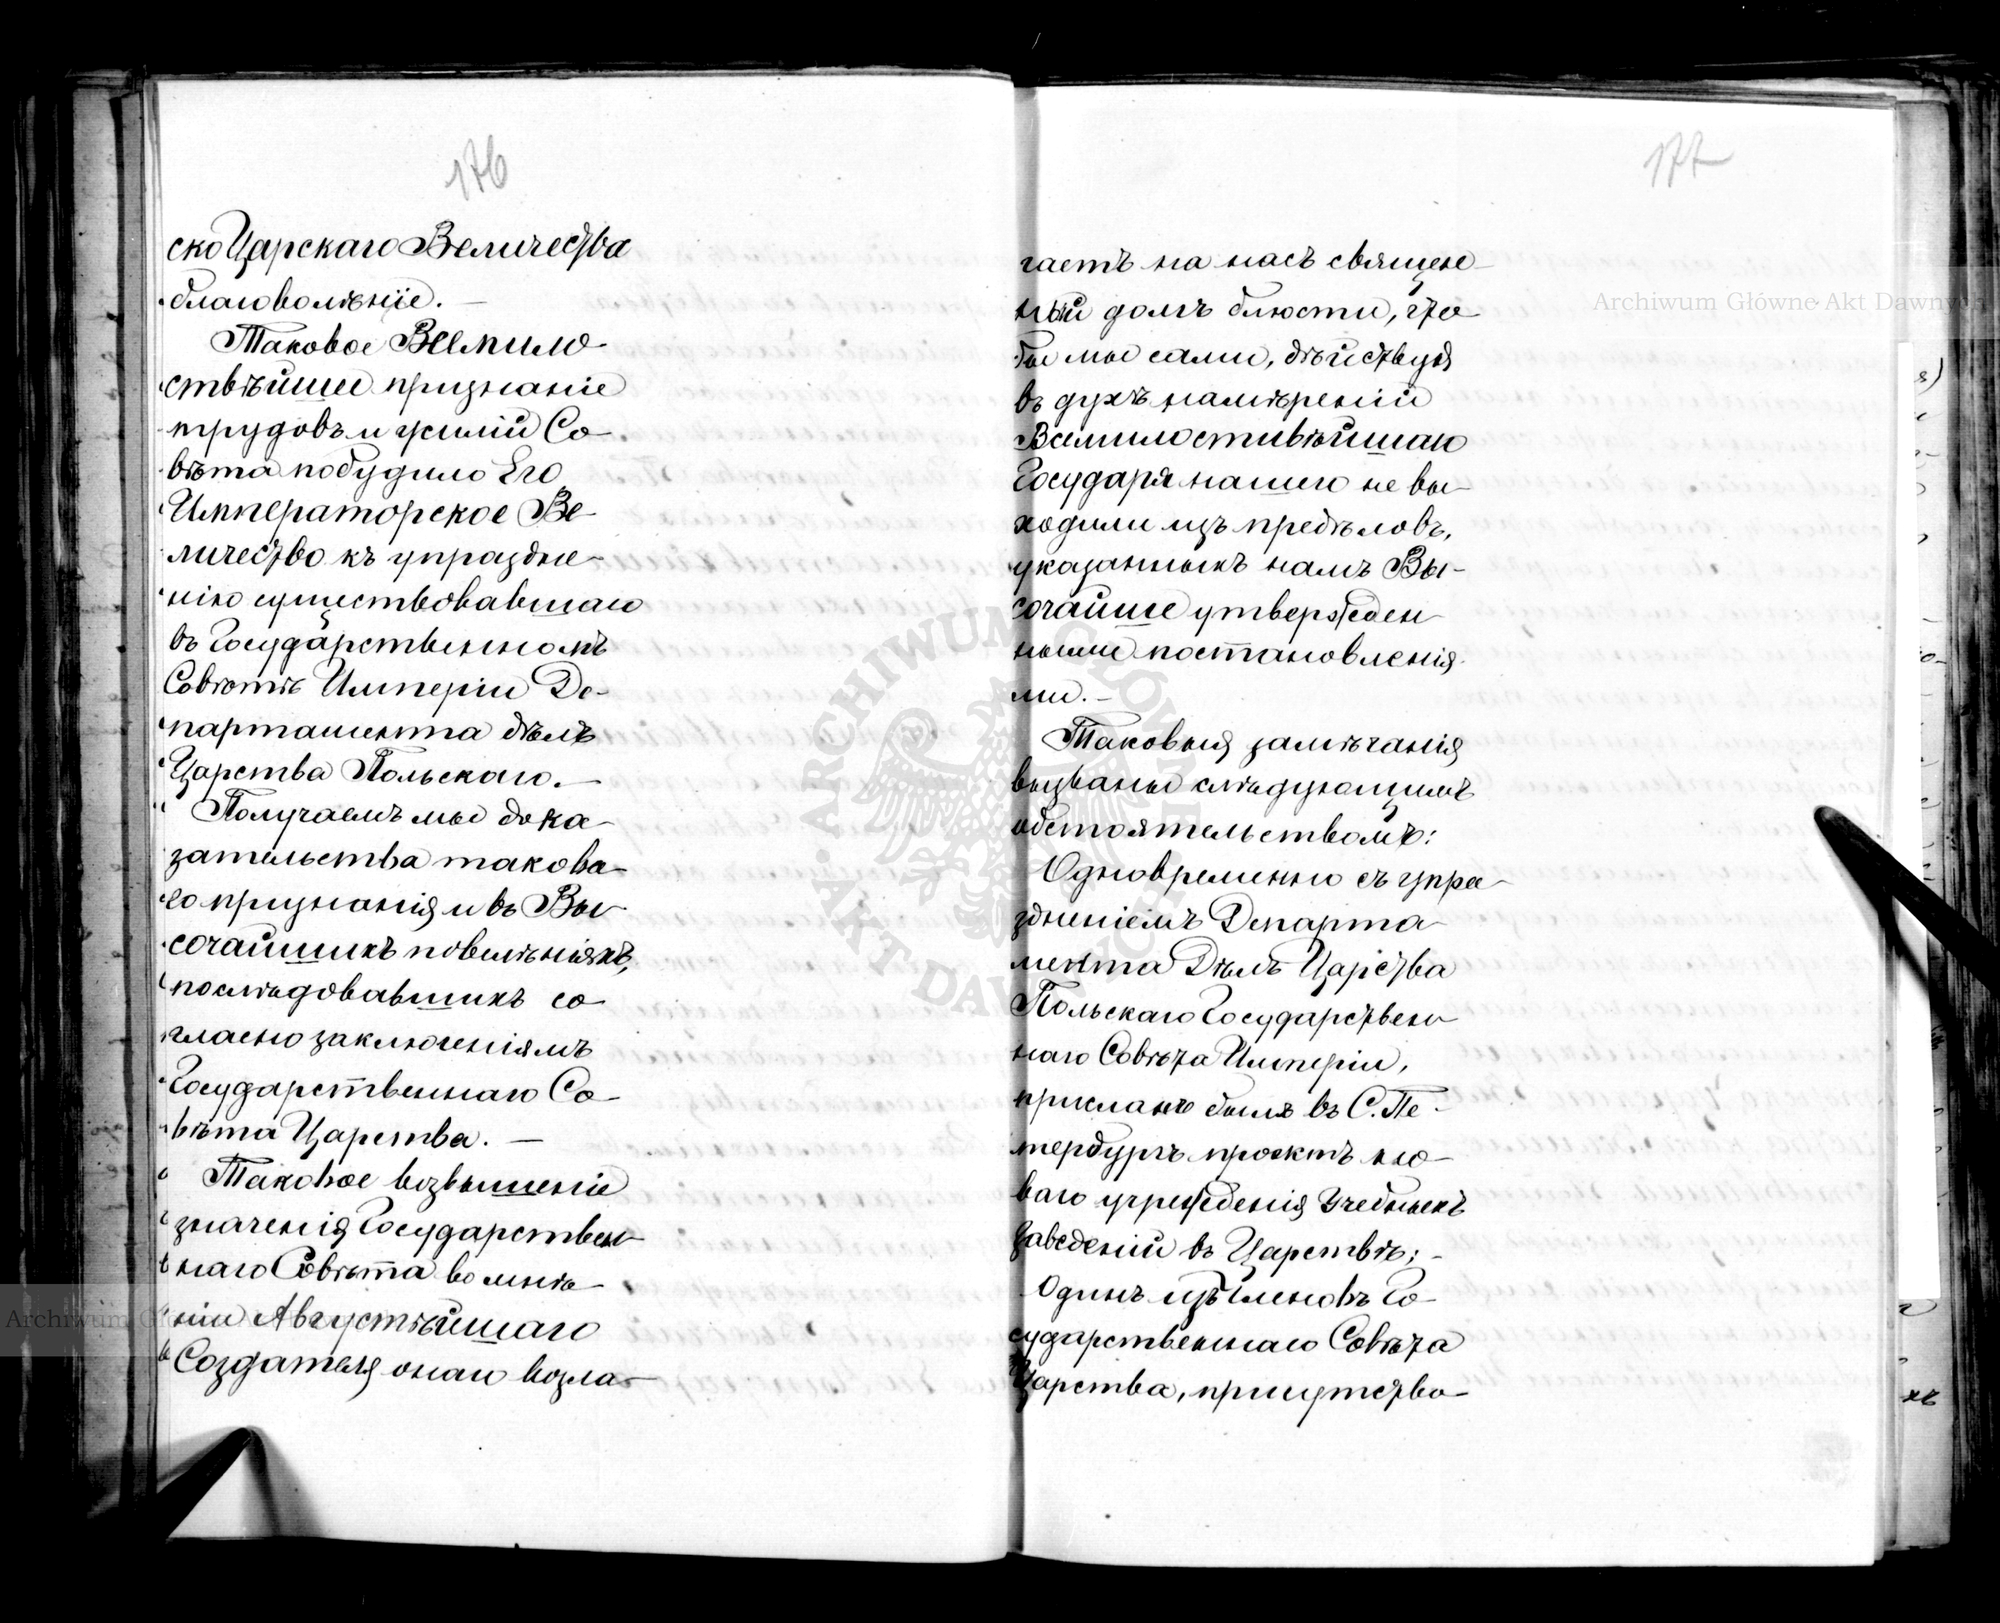 176
ско Царскаго Величества
благоволѣніе. —
Таковое Всемило-
стивѣйшее признаніе
трудовъ и усилій Со-
вѣта побудило Его
Императорское Ве-
личество къ упраздне-
нію существовавшаго
въ Государственномъ
Совѣтѣ Имперіи Де-
партамента дѣлъ
Царства Польскаго. —
Получаемъ мы дока-
зательства такова-
го признанія и въ Вы-
сочайшихъ повелѣніяхъ,
послѣдовавшихъ со-
гласно заключеніямъ
Государственнаго Со-
вѣта Царства. —
Таковое возвышеніе
значенія Государствен-
наго Совѣта во мнѣ-
ніи Августѣйшаго
Создателя онаго возла-
177
гаетъ на насъ священ-
ный долгъ блюсти, что
бы мы сами, дѣйствуя
въ духѣ намѣреній
Всемилостивѣйшаго
Государя нашего не вы-
ходили изъ предѣловъ,
указанныхъ намъ Вы-
сочайше утвержден-
ными постановленія-
ми. —
Таковыя замѣчанія
вызваны слѣдующимъ
обстоятельствомъ:
Одновременно съ упра-
здненіемъ Департа-
мента Дѣлъ Царства
Польскаго Государствен-
наго Совѣта Имперіи,
присланъ былъ въ С. Пе-
тербургъ проектъ но-
ваго учрежденія Учебныхъ
Заведеній въ Царствѣ; —
Одинъ изъ Членовъ Го-
сударственнаго Совѣта
Царства, присутство-
Archiwum Główne Akt Dawnych
Archiwum Główne Akt Dawnych
ARCHIWUM GŁÓWNE AKT DAWNYCH